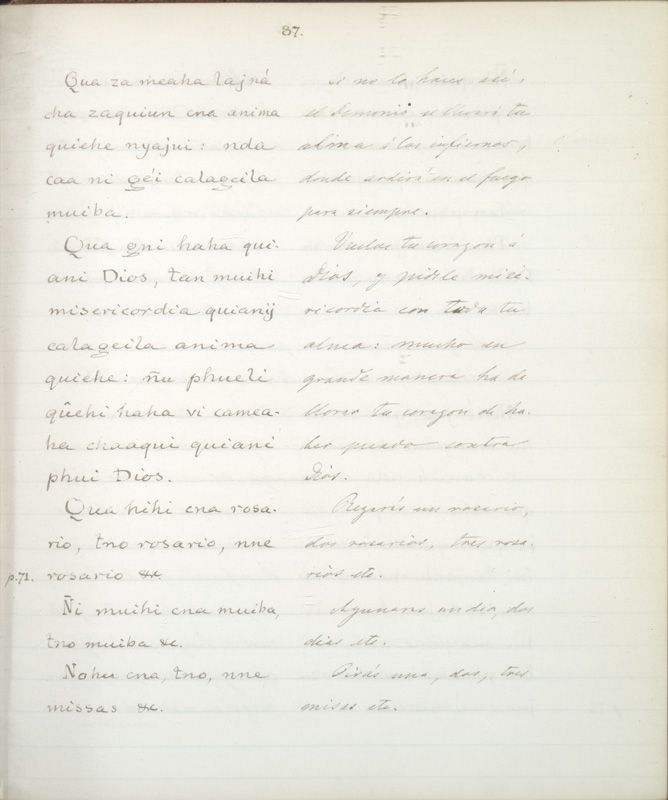 37.
Qua za meaha lajná
cha zaquiun cna anima
quiehe nyajui: nda
caa ni géi calageila
muiba.
Qua gni haha qui-
ani Dios, tan muihi
misericordia quianij
calageila anima
quiehe: ñu phueli
qûehi haha vi camea-
ha chaaqui quiani
phui Dios.
Qua hihi cna rosa-
rio, tno rosario, nne
p.71. rosario &c.
Ñi muihi cna muiba,
tno muiba &c.
Nohu cna, tno, nne
missas &c.
Si no lo haces así,
el demonio se llevará tu
alma á los infiernos,
donde arderá en el fuego
para siempre.
Vuelve tu corazon á
Dios, y pidele mise-
ricordia con toda tu
alma: mucho en
grande manera ha de
llorar tu corazon de ha-
ber pecado contra
Dios.
Rezarás un rosario,
dos rosarios, tres rosa-
rios etc.
Ayunaras un dia, dos
dias etc.
Oirás una, dos, tres
misas etc.